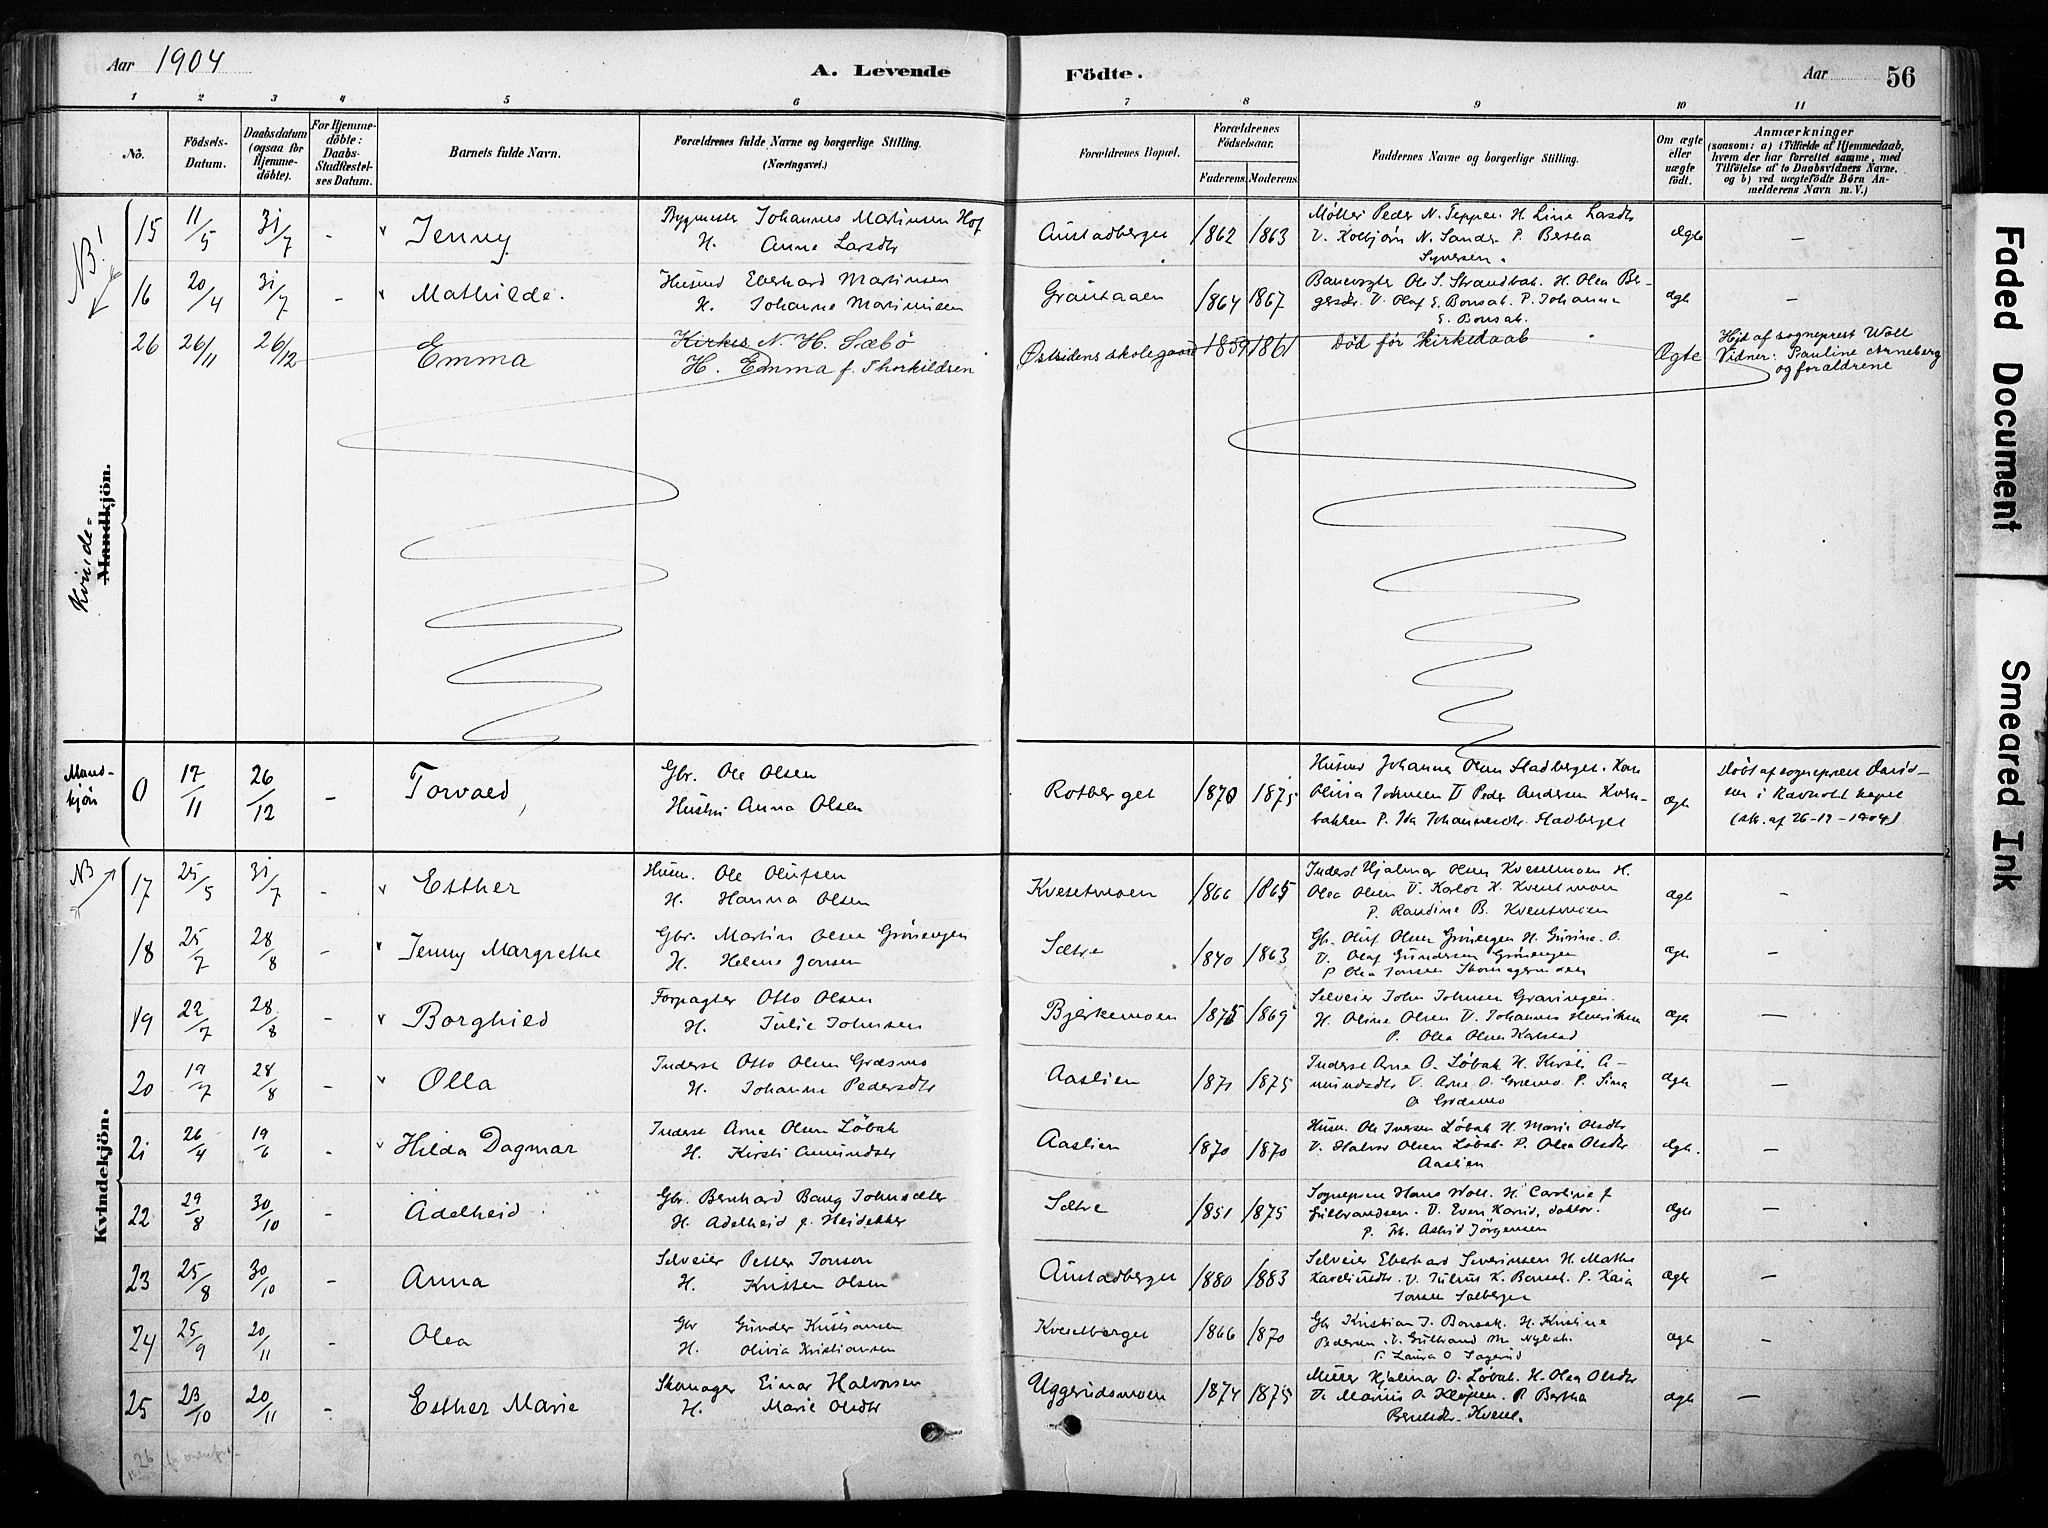 Aar 1904
A. Levende
Födte.
Aar
56
1 2 3 4 5 6 7 8 9 10 11
No.
Födsels-Datum.
Daabsdatum (ogsaa for Hjemme-döbte).
For Hjemme-döbte: Daabs-Stadfæstel-ses Datum.
Barnets fulde Navn.
Forældrenes fulde Navne og borgerlige Stilling. (Næringsvei.)
Forældrenes Bopæl.
Forældrenes Födselsaar.
Faderens. Moderens.
Faddernes Navne og borgerlige Stilling.
Om ægte eller uægte födt.
Anmærkninger
(saasom: a) i Tilfælde af Hjemmedaab, hvem der har forrettet samme, med Tilföielse af to Daabsvidners Navne, og b) ved uægtefödte Börn An-melderens Navn m. V.)
NB!
15 11/5 31/7 - Jenny
Johannes Martinsen Hof
H. Anne Larsdtr
Austadberget 1862 1863
Møller Peder N. Teppen. H. Line Larsdtr
V. Kolbjørn N. Sander P. Bertha
Syversen.
Ægte -
16 20/4 31/7 - Mathilde.
Husmd Eberhard Martinsen
H. Johanne Martinusen
Graustaaen 1864 1867
Banevogter Ole S. Strandbak. H. Olea Ber-
gersdtr. V. Olaf E. Bonsak. P. Johanna
E. Bonsak.
ægte -
26 26/11 26/12 Emma
Kirkes. N. H. Sæbö
H. Emma f. Thorkildsen
Østsidens skolegaard 1859 1861
Död för Kirkedaab
Ægte
Hjd af sogneprest Woll
Vidner: Pauline Arneberg
og forældrene
Kvinde-
Mandkjön.
Mand-
kjön
0 17/11 26/12 - Torvald
Gbr. Ole Olsen
Hustru Anna Olsen
Rotberget 1870 1875
Husmd Johannes Olsen Stadberget. Kone
Olivia Johnsen V Peder Andersen Kvern-
bakken P. Ida Johannesdtr. Stadberget
ægte
Döbt af sogneprest David-
sen i Ravnholt kapel
NB
17 25/5 31/7 - Esther
Husm. Ole Olufsen
H. Hanna Olsen
Kvesetmoen 1866 1865
Inderst Hjalmar Olsen Kvesetmoen H.
Olea Olsen V. Karlor K. Kvesetmoen
P. Randine B. Kvesetmoen
ægte -
18 25/7 28/8 - Jenny Margrethe
Gbr. Martin Olsen Grönengen
H. Helene Jonsen
Sætre 1840 1863
Gb. Oluf Olsen Grönengen H. Gurine. O.
V. Olaf Gundersen Grönengen
P Olea Jonsen
ægte -
19 22/7 28/8 - Borghild
Forpagter Otto Olsen
H. Julie Johnsen
Bjerkemoen 1875 1869
Selveier John Johnsen Gravingen.
H. Oline Olsen V. Johannes Henriksen
P. Olea Olsen Karlstad
ægte -
20 19/7 28/8 - Olla
Inderst Otto Olsen Græsmo
H. Johanne Pedersdtr
Aaslien 1871 1875
Inderst Arne O. Løbak H. Kirsti A-
mundsdtr V. Arne O. Græsmo P. Sina
O Græsmo
ægte -
21 26/4 19/6 Hilda Dagmar
Inderst Arne Olsen Løbak
H. Kirsti Amundsdtr
Aaslien 1870 1870
Husm. Ole Iversen Løbak H. Marie Olsdtr
V. Halvor Olsen Løbak. P. Olea Olsdtr
Aaslien
ægte. -
22 29/8 30/10 - Adelheid
Gbr. Bernhard Bang Johnsæter
H. Adelheid f. Heidekker
Sætre 1851 1875
Sogneprest Hans Woll. H. Caroline f
Gulbrandsen. V. Even Karid, doktor.
P. Frk. Astrid Jörgensen
ægte -
23 25/8 30/10 - Anna
Selveier Petter Jonson
H. Kristen Olsen
Austadberget 1880 1883
Selveier Eberhard Severinsen H. Mathe
V. Julius K. Bonsak. P. Kaia
Jonsen Solberget
ægte -
24 25/9 20/11 - Olea
Gbr Gunder Kristiansen
H. Olivia Kristiansen
Kvesetberget 1866 1870
Gbr Kristian J. Bonsak. H. Kristine
Pedersen. V. Gulbrand M. Nybak.
P. Laura O Sagerud
ægte -
25 23/10 20/11 - Esther Marie
Skomager Einar Halvorsen
H. Marie Olsdtr
Uggerudsmoen 1874 1875
Murer Hjalmar O. Løbak. H. Olea Olsdtr
V. Marius O. Kleven. P. Bertha
Berntsdtr. Kveset.
ægte -
Kvindekjön.
26
Faded Document
Smeared Ink